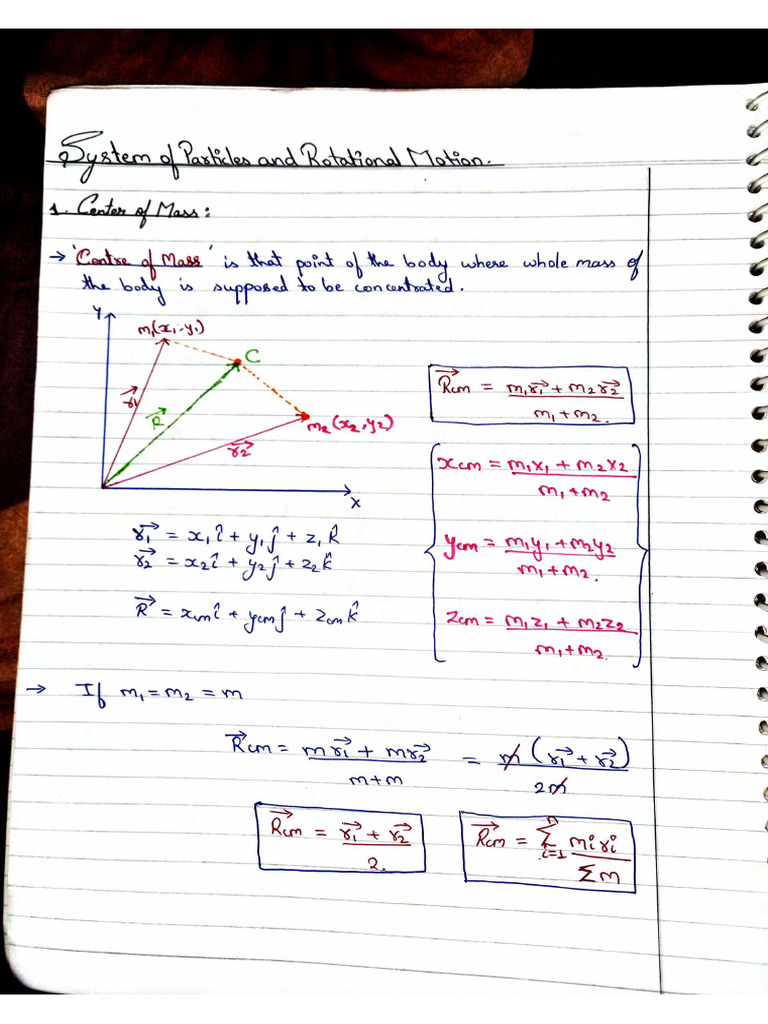 System of Particles and Rotational Motion.
1. Center of Mass:
→ 'Centre of Mass' is that point of the body where whole mass of
the body is supposed to be concentrated.
Y
m₁(x₁,y₁)
C
r₁⃗
R⃗
r₂⃗
m₂(x₂,y₂)
X
R⃗cm = (m₁r₁⃗ + m₂r₂⃗)/(m₁+m₂).
xcm = (m₁x₁ + m₂x₂)/(m₁+m₂)
ycm = (m₁y₁ + m₂y₂)/(m₁+m₂).
zcm = (m₁z₁ + m₂z₂)/(m₁+m₂).
r₁⃗ = x₁î + y₁ĵ + z₁k̂
r₂⃗ = x₂î + y₂ĵ + z₂k̂
R⃗ = xcmî + ycmĵ + zcmk̂
→ If m₁ = m₂ = m
R⃗cm = (mr₁⃗ + mr₂⃗)/(m+m) = m(r₁⃗ + r₂⃗)/2m
R⃗cm = (r₁⃗ + r₂⃗)/2.
R⃗cm = Σⁿᵢ₌₁ miri/Σm